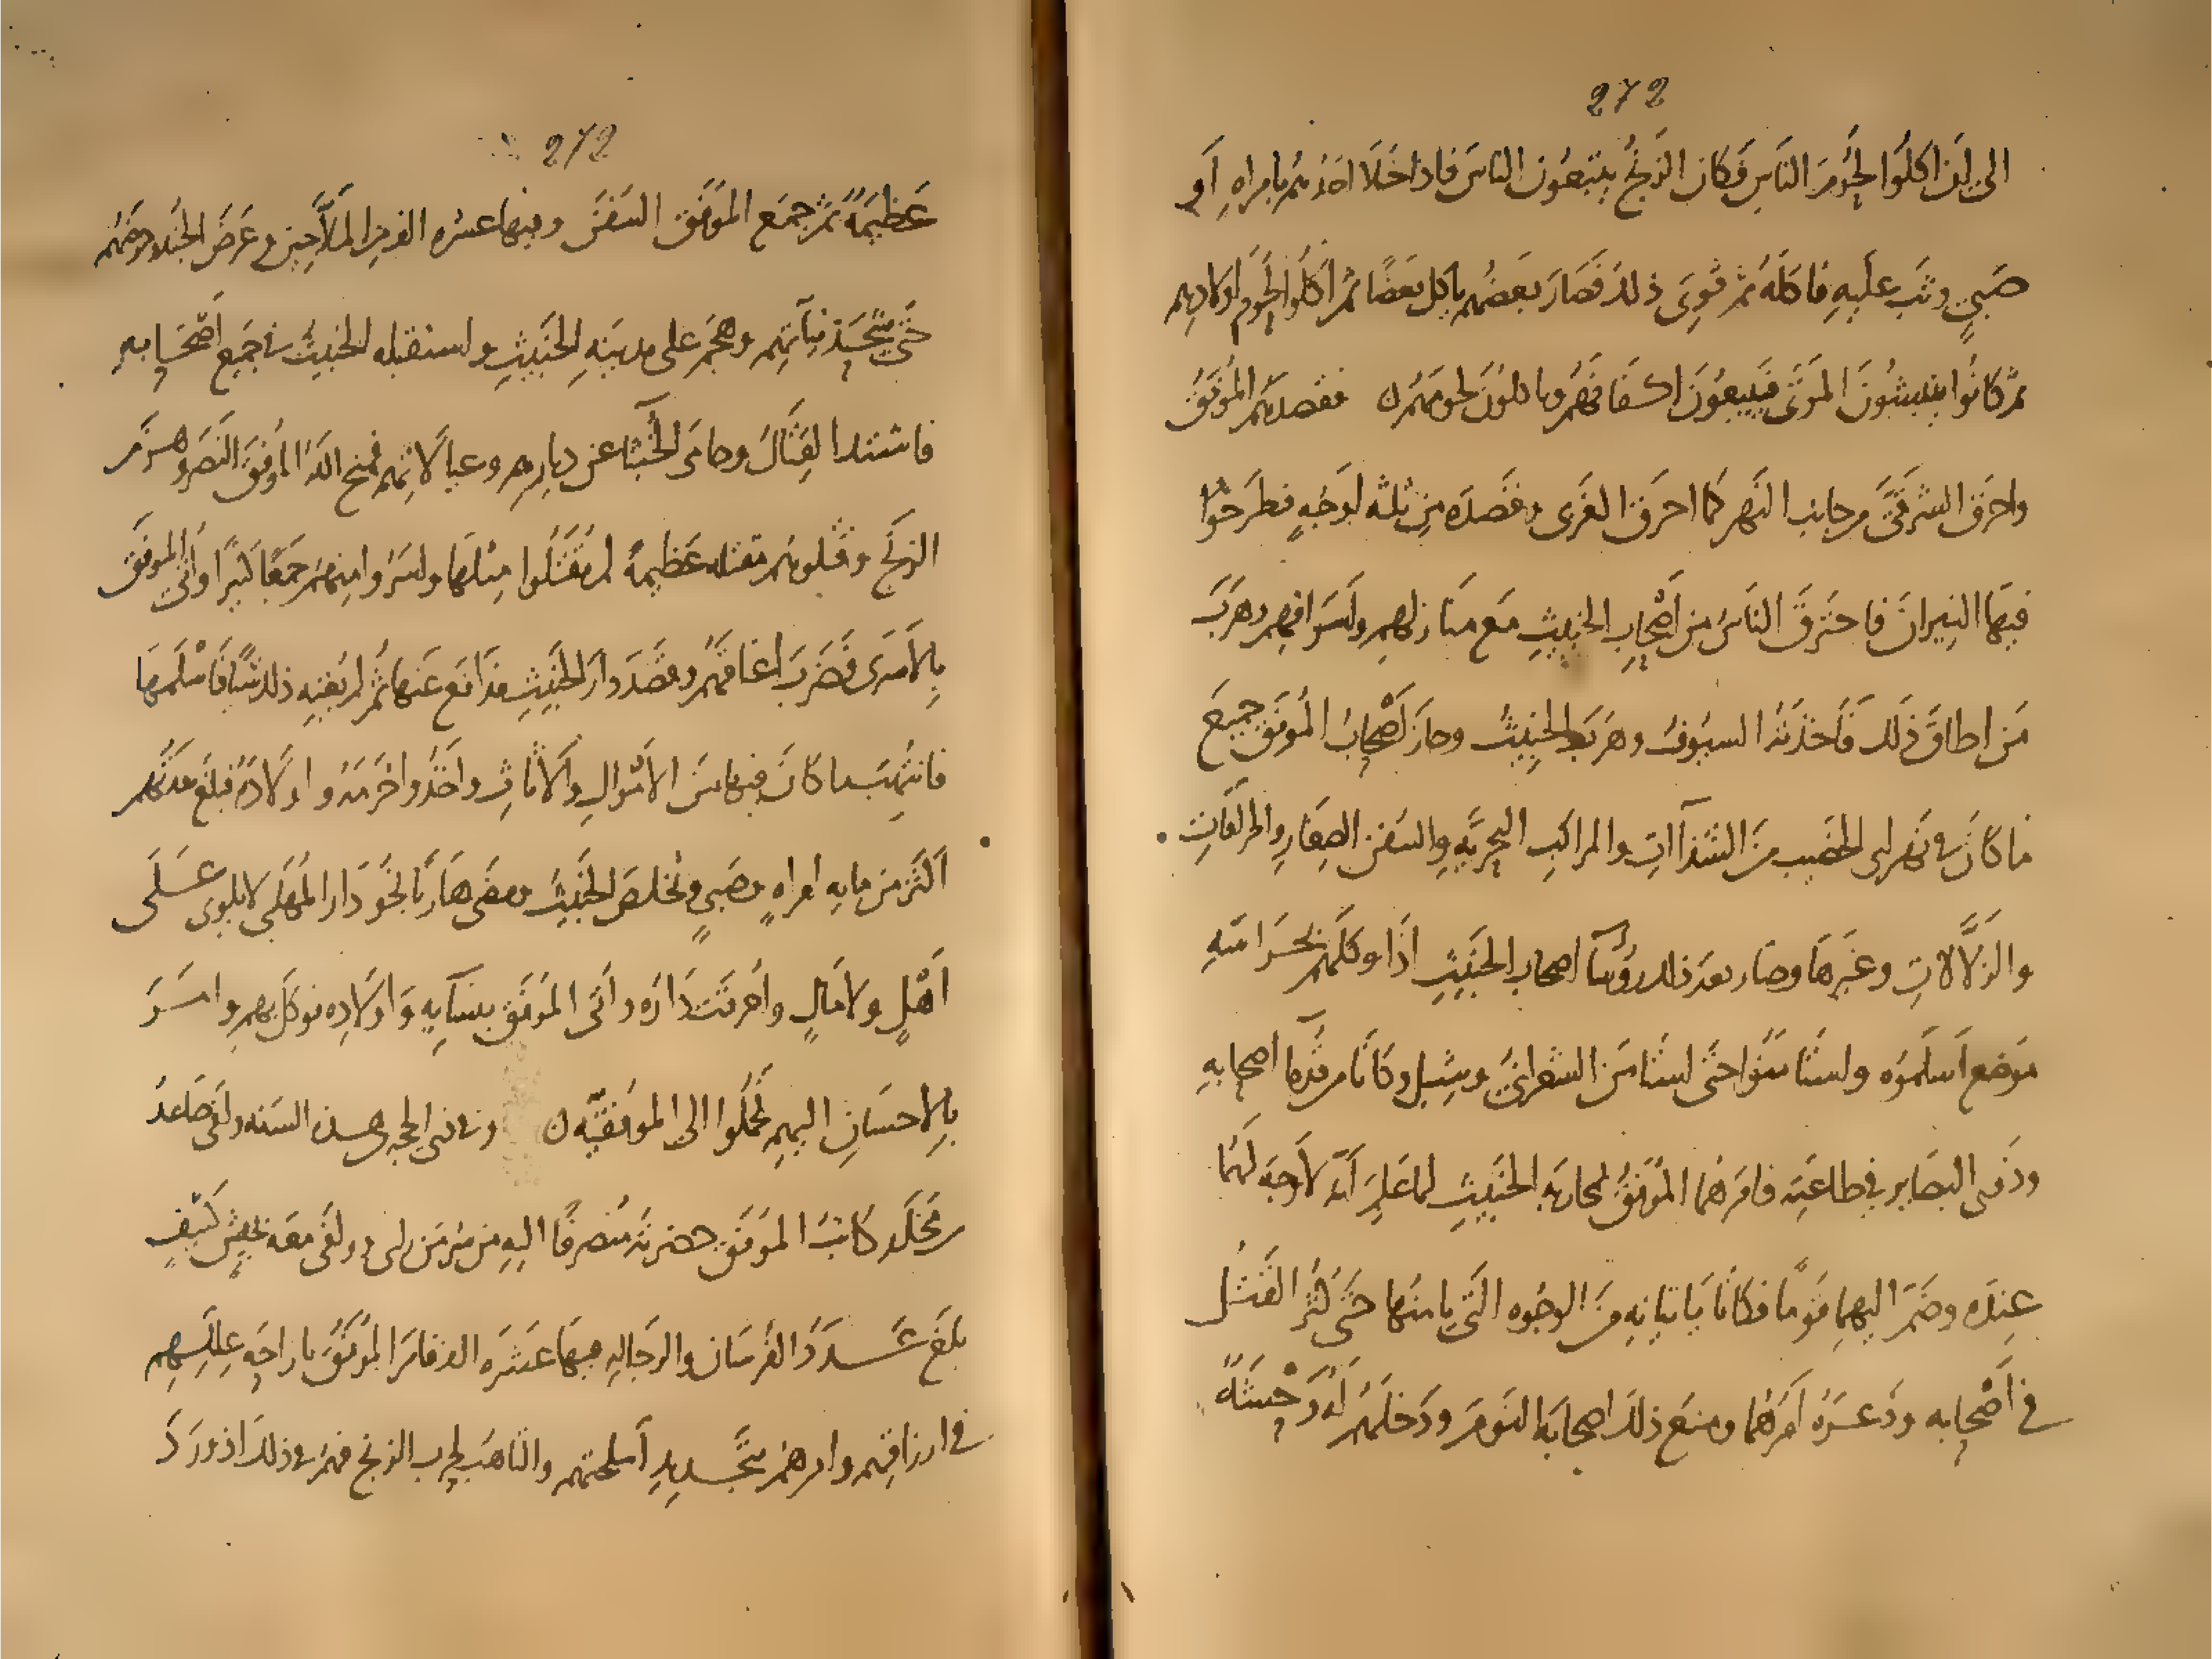 272
الى ان اكلوا لحُومَ الناسِ فكان الزنجُ يتبعُون الناسَ فاذا خَلَا احدُهُم بامراهٍ اَو
صَبيٍ وثبَ عليهِ فاكلَهُ ثم قوِىَ ذلك فصَارَ بَعضُهُم ياكل بَعضًا ثم اكلُوا لحُوم اولادِهِم
ثم كانُوا ينبشُونَ الموتَى فيَبيعُونَ اكفانَهُم وياكلُونَ لحومَهُم ں فقصدَهُم المُوَفقُ
واحرَق الشرقىَّ من جانب النَهرِ كما احرَقَ الغَربى وقصَدَه مِن ثلثه اَوجُهٍ فطَرَحُوا
فيهَا النِيرانَ فاحتَرقَ الناسُ من اَصْحابِ الخبيثِ مَع منَازلهِم واَسوَاقِهِم وهَربَ
مَن اطاقَ ذلك فَاَخذَتهُ السيُوفُ وهَرَبَ الخبيثُ وحازَ اَصْحابُ المُوفق جميعَ
مَا كانَ فى نَهر ابى الخصيبِ منَ الشذَاآتِ والمراكبِ البحريَّهِ والسُفن الصِغارِ والحرَّاقاتِ
والزلّالاتِ وغيَرهَا وصَار بعدَ ذلك رؤسَآ اصحاب الخبَيثِ اذَا وكلَهُم بحرَاسَهِ
مَوضعٍ اَسلَموُه واستَامنُوا حتَى استَامَنَ الشعرانىُ وشِبل وكانَا من قدَمآ اصحابهِ
وذَوى البصَايرِ في طاعَتِه فامَرهُما المُوَفقُ لمحاربَهِ الخبَيثِ لما عَلمَ اَنه لا وجهَ لهُمَا
عِندَه وضَمَّ اليهِما قومًا فكانَا يَاتيانِهِ منَ الوجُوه التى يامنُها حتَى كثُر القتْل
في اَصْحابه وذَعَرَهُ اَمرُهُما ومنعَ ذلكَ اصحابَه النَومَ ودَخلَهُم لهُ وَحْشَةً
272
عَظيمَةً ثم جمَع المُوَفق السُفنَ وفيها عشره الفٍ من الملَّاحِين وعَرضَ الجُند وضَمهُم
حتَى يتحَدَ نيآتهُم وهجَم على مدينَهِ الخَبيثِ واستقبله الخبيثُ فى جَميع اَصْحَابِهِ
فاشتدا لقتَالُ وحامَى الخُبثآ عن ديارِهِم وعيالَاتِهم فمنح اللهُ المُوفقَ النَصرَ وهَزَمَ
الزنجَ وقتلوهُم مقتله عَظيمهً لم يُقتَلُوا مثلَهَا واسَرُوا منِهُم جَمعًا كثيرًا واُتىَ الموفَق
بِالاَسرَى فضَرَبَ اعناقَهُم وقصَدَ دارَ الخبَيثِ فدَافعَ عَنهَا ثم لم يُغنِهِ ذلك شيًا فَاَسْلَمهَا
فانتُهبَ ما كانَ فيها منَ الاَمْوالِ والاَثاثِ واخَذُوا حُرمَهُ واولَادَهُ فبلغَ عدَتُهُم
اَكثَر من مايه امراهٍ وصَبيٍ وتخلصَ الخبَيثُ ومضَى هَاربًا نحوَ دَار المُهلَبى لا يلوى عَلَى
اَهْلٍ ولا مَالٍ واُحرقَت دَارُه واُتىَ المُوَفق بنسَآيهِ وَاولَادِه فوكلَ بِهِم وامَرَ
بِالاحسَانِ اليهِم فحُملُوا الى الموفَقيّه ں وفى ذى الحجه من هذه السَنه وافى صَاعدُ
بن مخلَد كاتبُ المُوَفق حضرتَهُ مُنصرفًا اليهِ من سُرمَن راى ووافى معَه بجَيشٍ كَثيفٍ
بلغَ عَدَدُ الفُرسَان والرجَالهِ فيها عشَرَه الف فامَرَ المُوَفقُ باِزاحَهِ عِللِهِم
في ارزاقِهم وامرهُم بتَجديدِ اَسلحتِهم والتاهُبِ لحربِ الزنج فهُم فى ذلك اذ ورَدَ